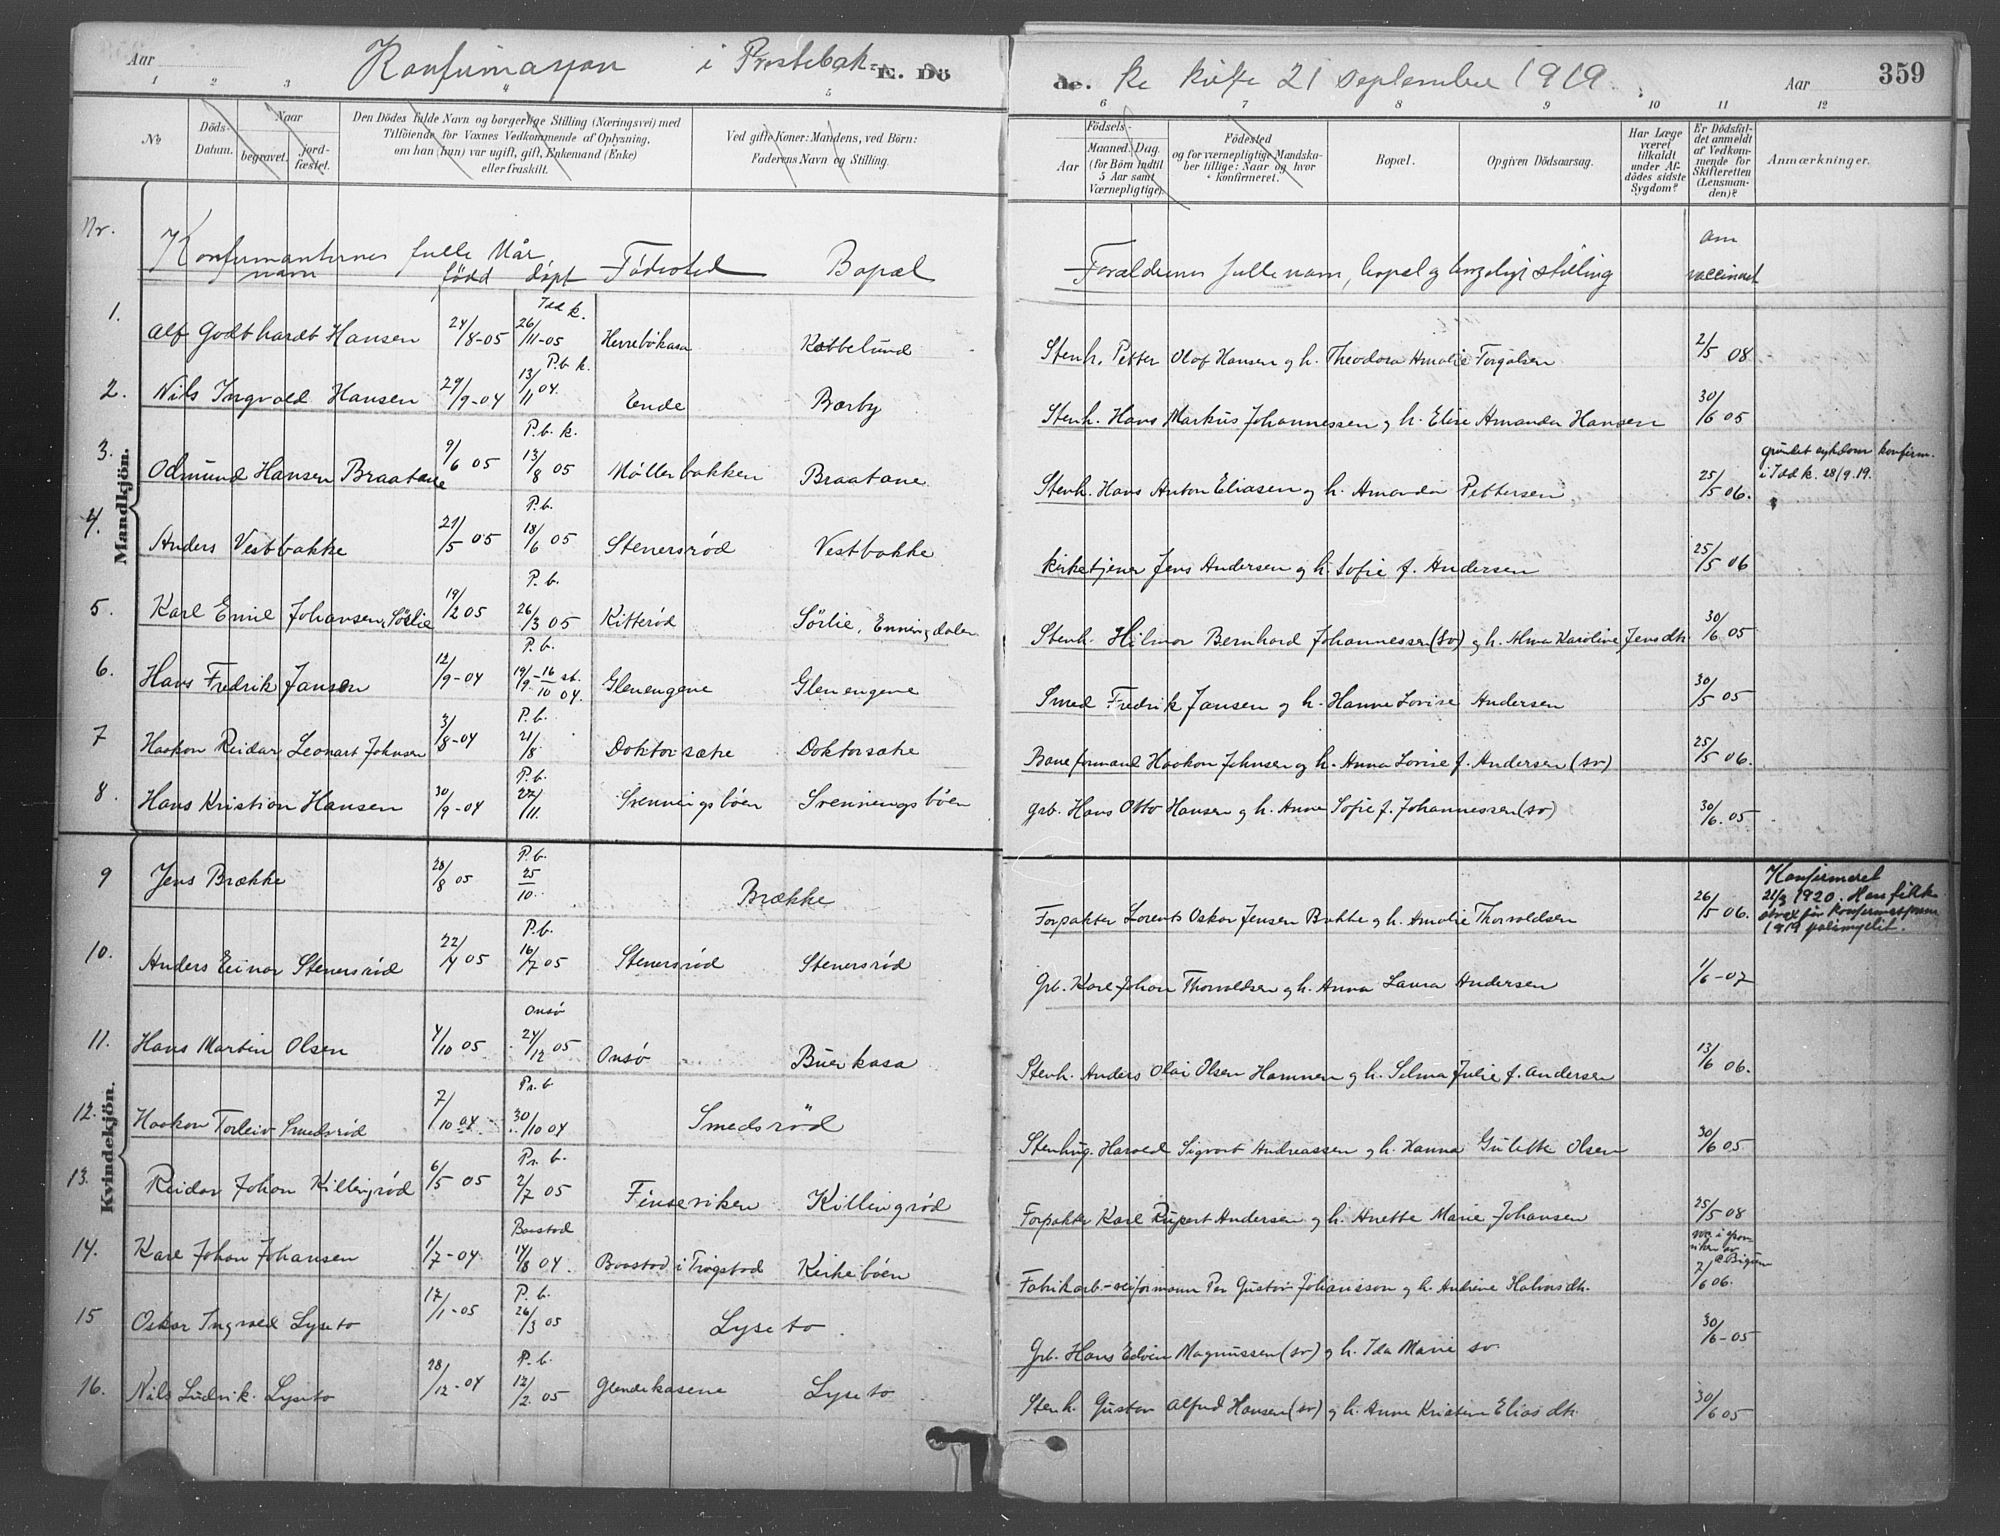 Aar
Konfirmasjon i Prestebak-
E. Dö
de.
ke kirke 21 september 1919.
Aar
359
1 2 3 4 5 6 7 8 9 10 11 12
№
Döds-
Datum.
Naar
begravet.
jord-
fæstet.
Den Dödes fulde Navn og borgerlige Stilling (Næringsvei) med
Tilföiende for Voxnes Vedkommende af Oplysning,
om han (hun) var ugift, gift, Enkemand (Enke)
eller fraskilt.
Ved gifte Koner: Mandens, ved Börn:
Faderens Navn og Stilling.
Födsels-
Aar
Maaned, Dag.
(for Börn indtil
5 Aar samt
Værnepligtige).
Födested
og for værnepligtige Mandska-
ber tillige: Naar og hvor
konfirmeret.
Bopæl.
Opgiven Dödsaarsag.
Har Læge
været
tilkaldt
under Af-
dödes sidste
Sygdom?
Er Dödsfal-
det anmeldt
af Vedkom-
mende for
Skifteretten
(Lensman-
den)?
Anmærkninger.
Nr.
Konfirmanternes fulle navn
Når
född döpt
Födested
Bopæl
Forældrenes fulle navn, bopæl og borgerlige stilling
om
vaccineret
Mandkjön.
1. Alf Godthardt Hansen 24/8-05 Idd k. 26/11-05 Herrebökasa Kabbelund Stenh. Petter Olaf Hansen g h. Theodora Amalie Torgalsen 2/5 08
2. Nils Ingvald Hansen 29/9-04 P.b k. 13/11 04. Ende Bærby Stenh. Hans Markus Johannessen g h. Elise Amanda Hansen 30/6 05
3. Odmund Hansen Braatane 9/6 05 P.b. k. 13/8 05 Møllerbakken Braatane Stenh. Hans Anton Eliasen g h. Amanda Pettersen 25/5 06.
grundet sykdom konfirm.
i Idd k. 28/9.19.
4. Anders Vestbakke 21/5 05 P.b. 18/6 05 Stenersrød Vestbakke Kirketjener Jens Andersen g h. Sofie f. Andersen 25/5 06
5. Karl Emil Johansen, Sörlie 19/2 05 P.b. 26/3 05 Kitterød Sörlie, Enningdalen Stenh. Hilmar Bernhard Johannessen (sv) g h. Alma Karoline Jensdtr. 30/6 05
6. Hans Fredrik Jansen 12/9-04 P.b. 19/9-16/10 st. 04. Glenengene Glenengene Smed Fredrik Jansen g h. Hanne Lovise Andersen 30/5 05
7 Haakon Reidar Leonart Johnsen 3/8-04 P.b. 21/8 Doktorsætre Doktorsætre Baneformand Haakon Johnsen g h. Anna Lovise f. Andersen (sv) 25/5 06.
8. Hans Kristian Hansen 30/9-04 P.b. 27/11. Svenningsböen Svenningsböen Grb. Hans Otto Hansen g h. Anne Sofie f. Johannessen (sv) 30/6. 05
9 Jens Brække 20/8 05 P.b. 25/10. Brække Forpakter Lorents Oskar Jensen g h. Amalie Thorvaldsen 26/5 06.
Konfirmeret
21/3 1920. Han fikk
straks før konfirmasjonen
1919
10. Anders Einar Stenersrød 22/4 05 P.b. 16/7 05 Stenersrød Stenersrød Grb. Karl Johan Thorvaldsen g h. Anna Laura Andersen 1/6-07
Kvindekjön.
11. Hans Martin Olsen 4/10 05 Onsø 24/12 05 Onsø Buerkasa Stenh. Anders Olai Olsen Hamnen g h. Selma Julie f. Andersen 13/6 06.
12. Haakon Torleiv Smedsrød 7/10 04. Pr. b 30/10 04 Smedsrød Stenhug. Harald Sigvart Andreassen g h. Hanna Gulette Olsen 30/6 05
13. Reidar Johan Killingrød 6/5 05 Pr. b. 2/7 05 Finseviken Killingrød Forpakter Karl Rupert Andersen g h. Anette Marie Johansen 25/5 08
14. Karl Johan Johansen 1/7-04 Baastad 14/8 04. Baastad i Trøgstad Kirkebøen Fabrikarb.-seiformann Per Gustav Johansson g h. Andrine Halvorsdtr. 2/6 06.
15 Oskar Ingvald Lyseto 17/1-05 P.b. 26/3 05 Lyseto Grb. Hans Edvin Magnussen (sv) g h. Ida Marie sv. 30/6-05
16. Nils Ludvik Lyseto 28/12-04 P.b. 12/2. 05 Glendekasene Lyseto Stenh. Gustav Alfred Hansen (sv) g h. Anne Kristine Eliasdtr. 30/6 05